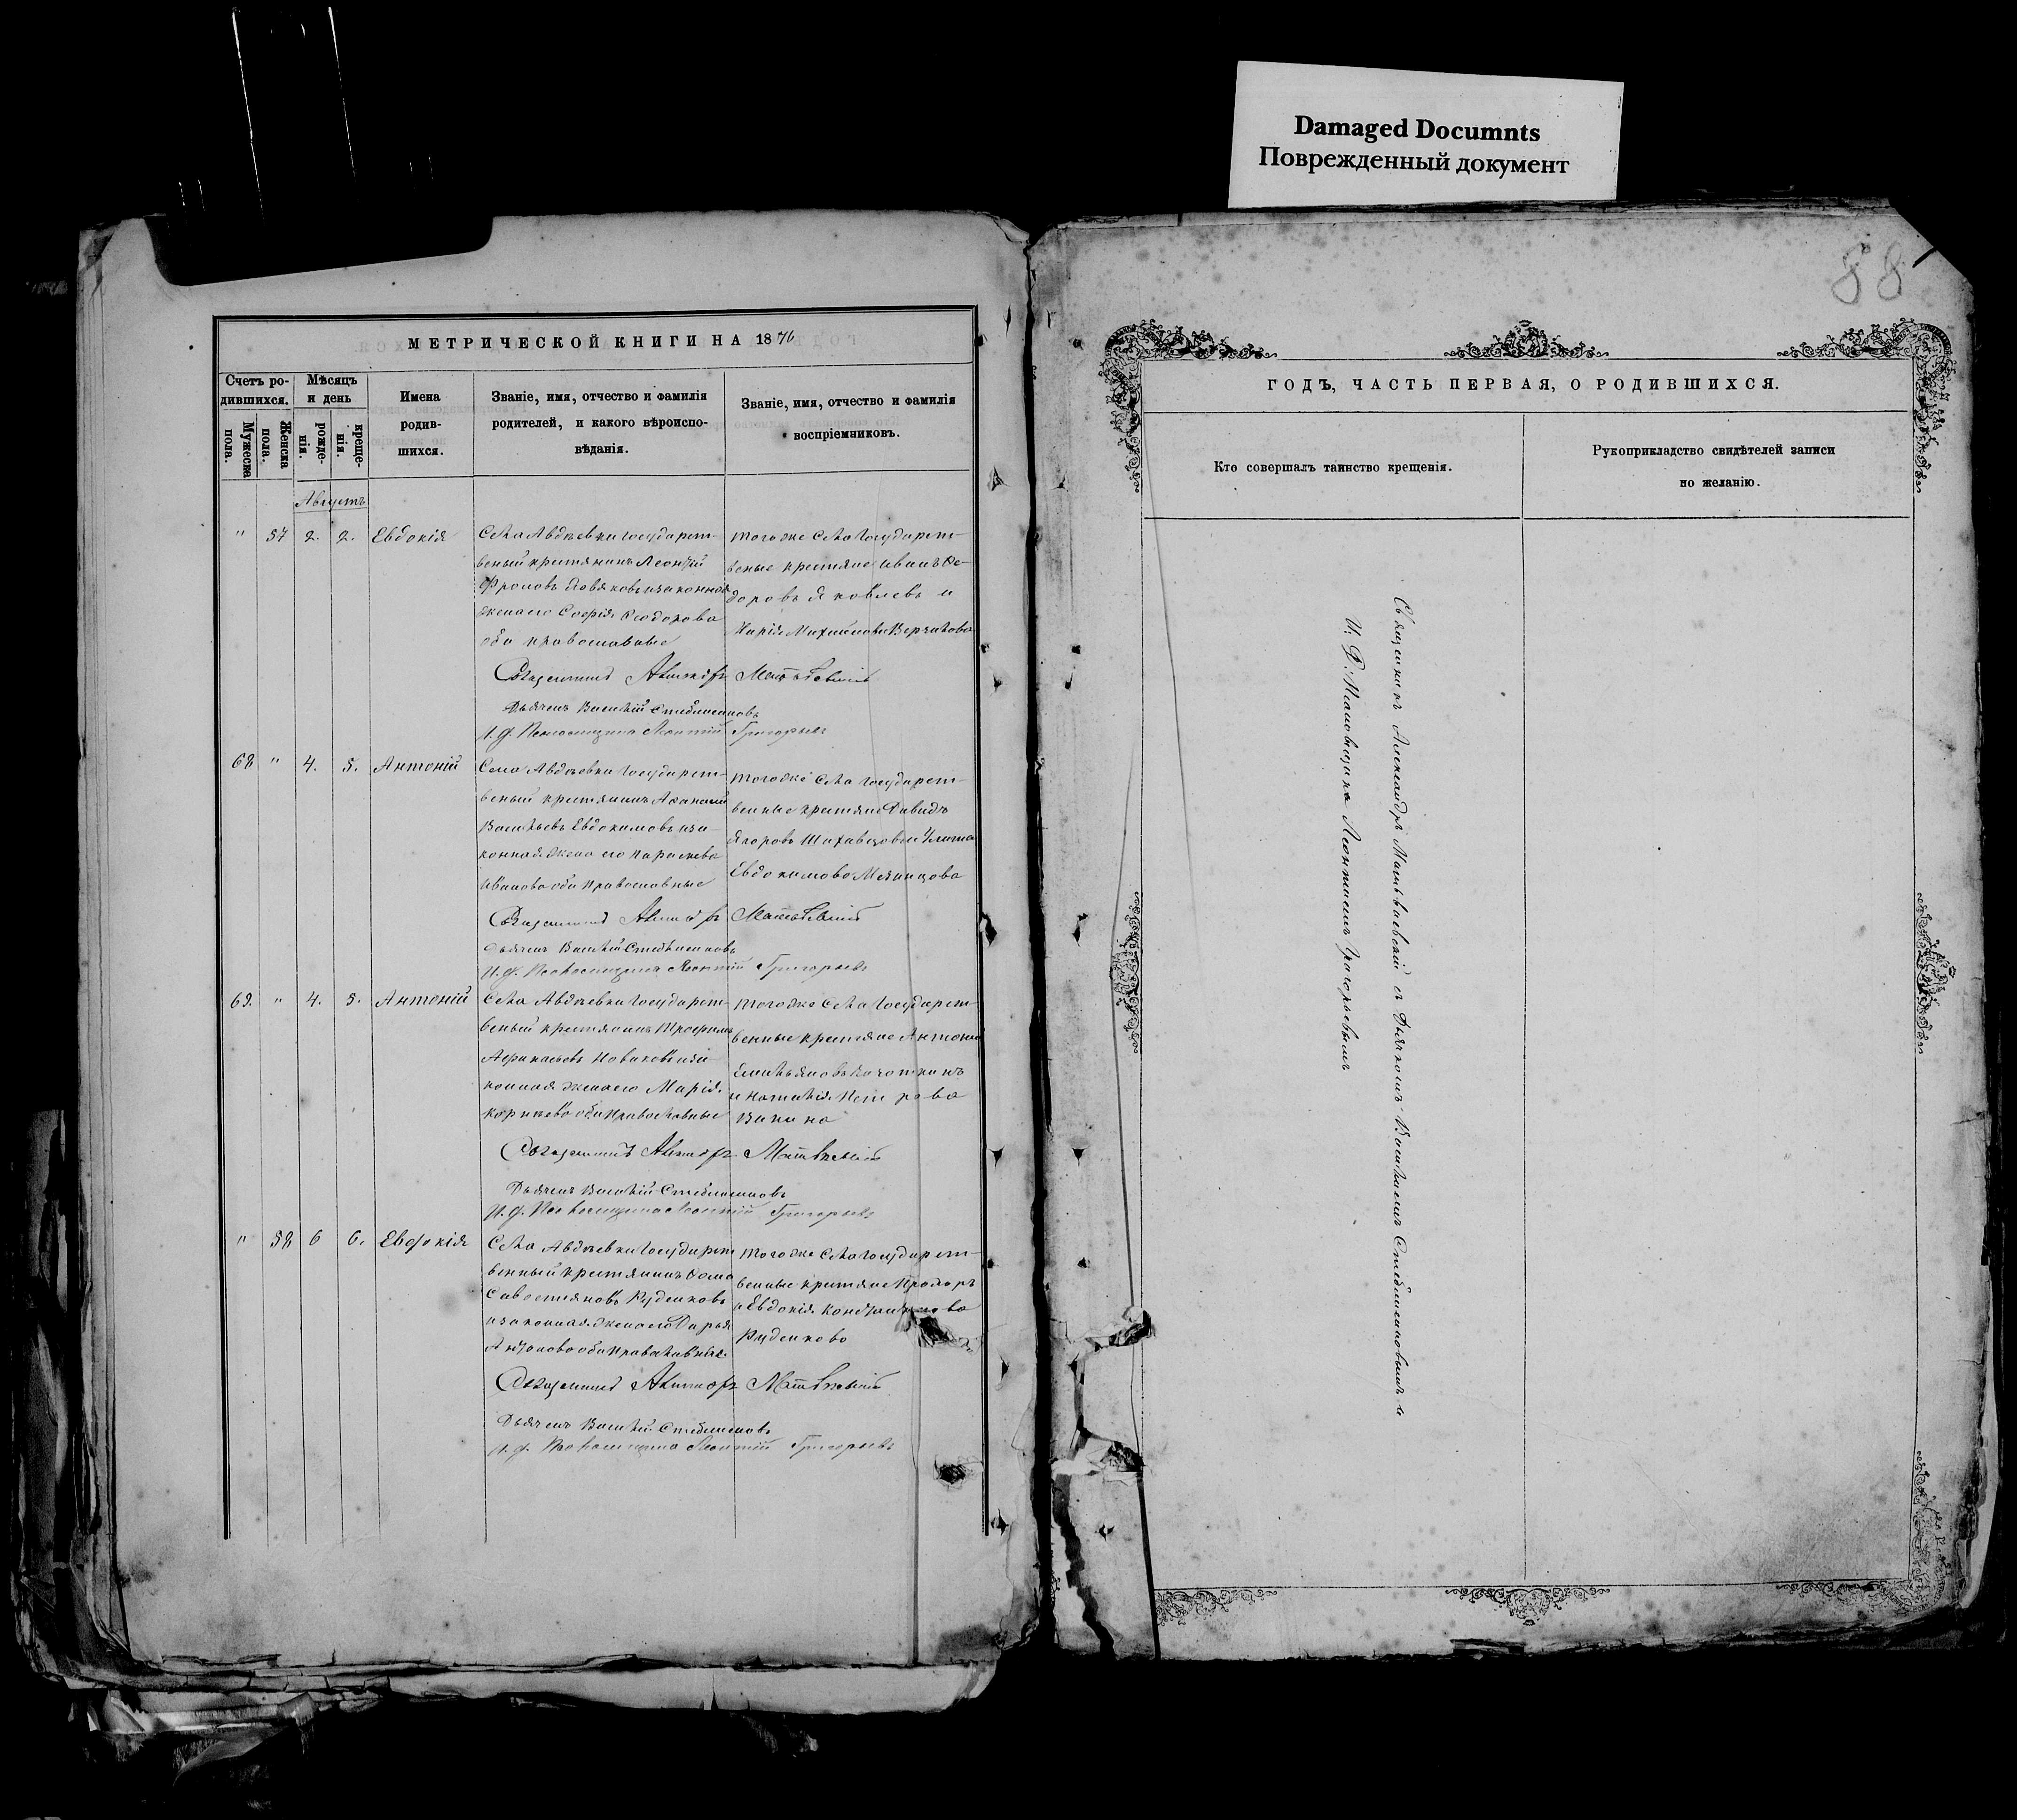 Damaged Documnts
Поврежденный документ
88
МЕТРИЧЕСКОЙ КНИГИ НА 1876
Счетъ ро-
дившихся.
Мужеска пола.
Женска пола.
Мѣсяцъ
и день
рожде-
нія.
креще-
нія.
Имена
родив-
шихся.
Званіе, имя, отчество и фамилія
родителей, и какого вѣроиспо-
вѣданія.
Званіе, имя, отчество и фамилія
воспріемниковъ.
Августъ
" 57 2. 2. Евдокія
Села Авдѣевки Государст-
веный крестянинъ Леонтій
Фроловъ законная
жена его Софія Феодорова
оба православные
того же Села Государст-
веные крестяне Иванъ Фе-
доровъ Яковлевъ и
Марія Михайлова
Священникъ Александръ Матвѣевскій
Дьячекъ Василій Стеблянковъ
И. Ф. Псаломщика Леонтій Григорьевъ
68 " 4. 5. Антоній
Села Авдѣевки Государст-
веный крестянинъ Афанасій
Васильевъ Евдокимовъ иза-
конная жена его Параскева
Иванова оба Православные
того же Села Государст-
венные крестяне Давидъ
Егоровъ
Евдокимова
Священникъ Александръ Матвѣевскій
Дьячекъ Василій
И. Ф. Псаломщика Леонтій Григорьевъ
69. " 4. 5. Антоній
Села Авдѣевки Государст-
веный крестянинъ Трофимъ
Афанасьевъ Новаковъ иза-
конная жена его Марія
Корнѣева оба Православные
того же Села Государст-
венные крестяне Антонъ
Емильяновъ
и Наталія Петрова
Священникъ Александръ Матвѣевскій
Дьячекъ Василій
И. Ф. Псаломщика Леонтій Григорьевъ
" 58 6 6. Евдокія
Села Авдѣевки Государст
венный Крестянинъ Фома
Савостяновъ Руденковъ
и законная жена его Дарья
Антонова оба Православные
того же Села Государст-
венные крестяне Прохоръ
и Евдокія Константинова
Руденково
Священникъ Александръ Матвѣевскій
Дьячекъ Василій
И. Ф. Псаломщика Леонтій Григорьевъ
ГОДЪ, ЧАСТЬ ПЕРВАЯ, О РОДИВШИХСЯ.
Кто совершалъ таинство крещенія.
Рукоприкладство свидѣтелей записи
по желанію.
Священникъ Александръ Матвѣевскій съ Дьячкомъ Василіемъ Стеблянковымъ и
И. Ф. Псаломщика Леонтіемъ Григорьевымъ